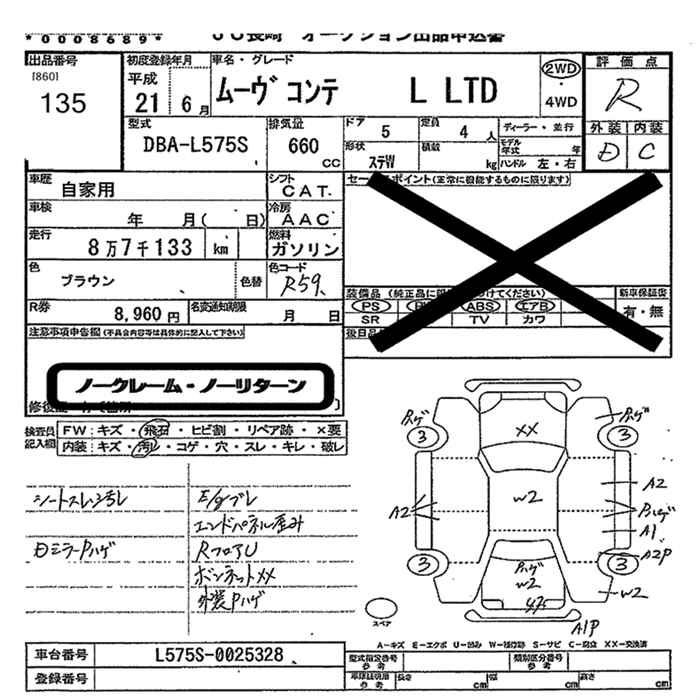 *0008689*
JU長崎 オークション出品申込書
出品番号
[860]
135
初度登録年月
平成
21 6月
車名・グレード
ムーヴ コンテ L LTD
2WD
・
4WD
評価点
R
外装 内装
D C
型式
DBA-L575S
排気量
660
CC
ドア 5
定員 4 人
ディーラー・並行
形状 ステW
積載 kg
モデル年式 年
ハンドル 左・右
車歴
自家用
シフト
CAT
車検
年 月( 日)
冷房
AAC
走行
8万7千133 km
燃料
ガソリン
色
ブラウン
色替
色コード
R59
R券
8,960円
名変通知期限
月 日
セールスポイント(正常に機能するものに限ります)
装備品
PS
ABS
エアB
SR
TV
カワ
新車保証書
有・無
後日品
注意事項申告欄(不具合内容等は具体的に記入して下さい)
ノークレーム・ノーリターン
検査員記入欄
FW:キズ・飛石・ヒビ割・リペア跡・×要
内装:キズ・汚レ・コゲ・穴・スレ・キレ・破レ
シートスレ汚レ
E/gブレ
エンドパネル歪み
DミラーPハゲ
RフロアU
ボンネットXX
外装Pハゲ
Pハゲ
Pハゲ
3
3
XX
A2
A2
W2
Pハゲ
A1
A2P
3
3
Pハゲ
W2
W2
スペア
A1P
A-キズ E-エクボ U-凹み W-補修跡 S-サビ C-腐食 XX-交換済
車台番号
L575S-0025328
登録番号
型式指定番号
参考
類別区分番号
参考
車庫証明用
参考
長さ cm
幅 cm
高さ cm